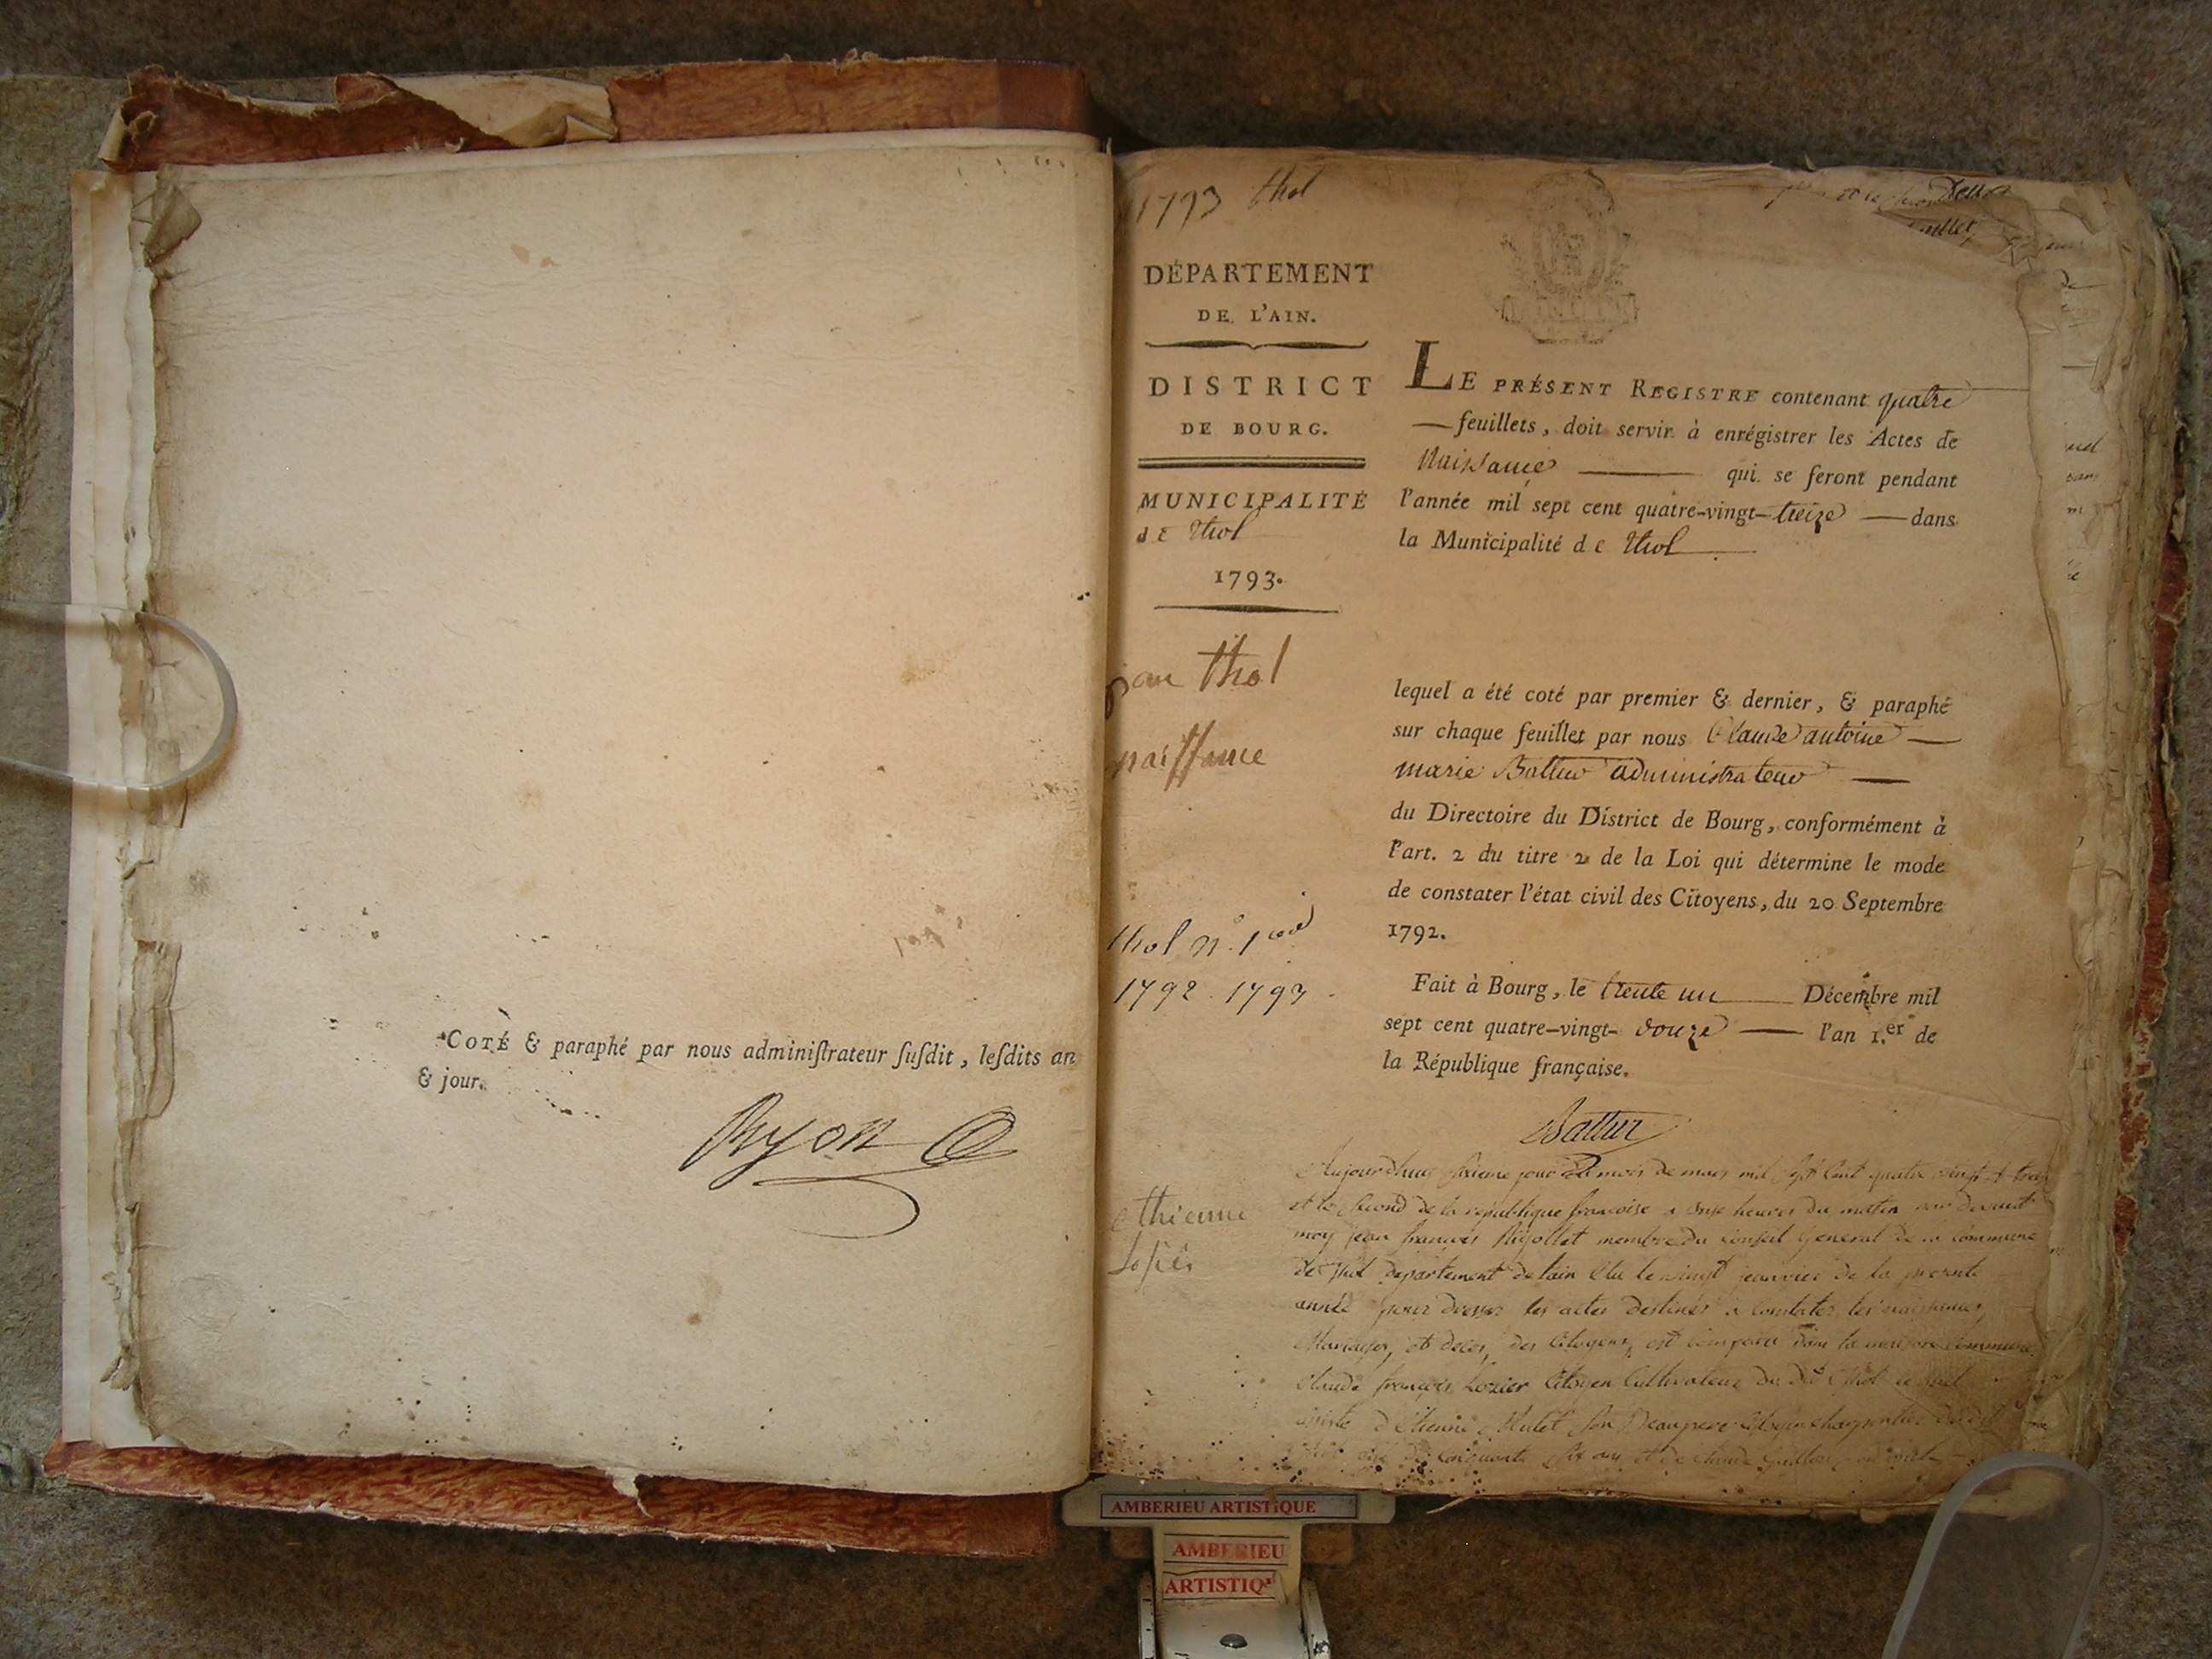 COTÉ & paraphé par nous adminiſtrateur ſuſdit, leſdits an
& jour.
Ryon
1793 thol
DÉPARTEMENT
DE L'AIN.
DISTRICT
DE BOURG.
MUNICIPALITÉ
de thol
1793.
thol
naissance
thol n.º 1
1792 1793
ethienne
Losier
LE PRÉSENT REGISTRE contenant quatre
— feuillets, doit servir à enrégistrer les Actes de
Naissance — qui se feront pendant
l'année mil sept cent quatre-vingt-treize — dans
la Municipalité de thol
lequel a été coté par premier & dernier, & paraphé
sur chaque feuillet par nous Claude antoine —
marie Battur administrateur —
du Directoire du District de Bourg, conformément à
l'art. 2 du titre 2 de la Loi qui détermine le mode
de constater l'état civil des Citoyens, du 20 Septembre
1792.
Fait à Bourg, le trente un — Décembre mil
sept cent quatre-vingt- douze — l'an 1.er de
la République française.
Battur
Aujourdhuy sixieme jour du mois de mars mil sept cent quatre vingt treize
et le second de la republique francoise a onze heures du matin par devant
moy jean françois Rigollet membre du conseil General de la Commune
de thol departement de lain elu le vingt janvier de la presente
année pour dresser les actes destinés a constater les naissances,
Mariages, et deces, des Citoyens, est comparu dans la maison commune
Claude françois Lozier Citoyen Cultivateur du dit thol lequel
assisté d'Etienne Mulet son Beaupere Citoyen charpentier dudit
thol agé de cinquante sept ans et de claude
AMBERIEU ARTISTIQUE
AMBERIEU
ARTISTIQ